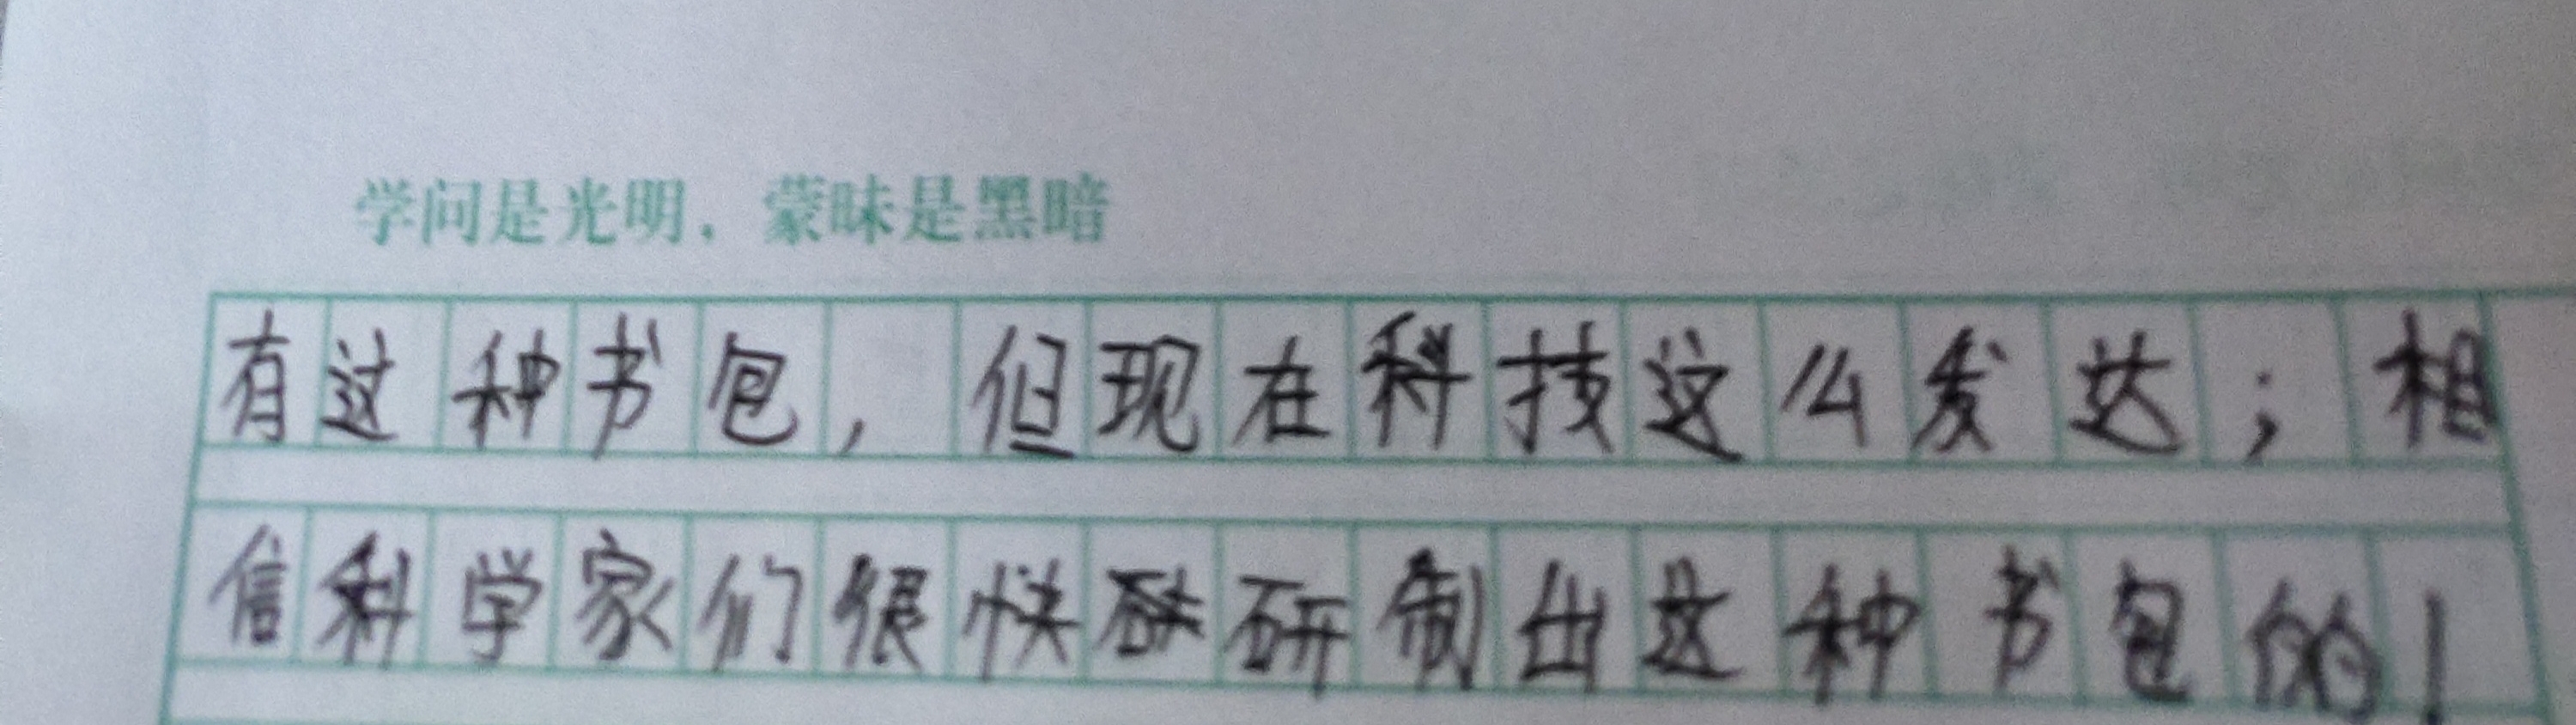 学问是光明，蒙昧是黑暗
有这种书包，但现在科技这么发达；相
信科学家们很快研制出这种书包的！